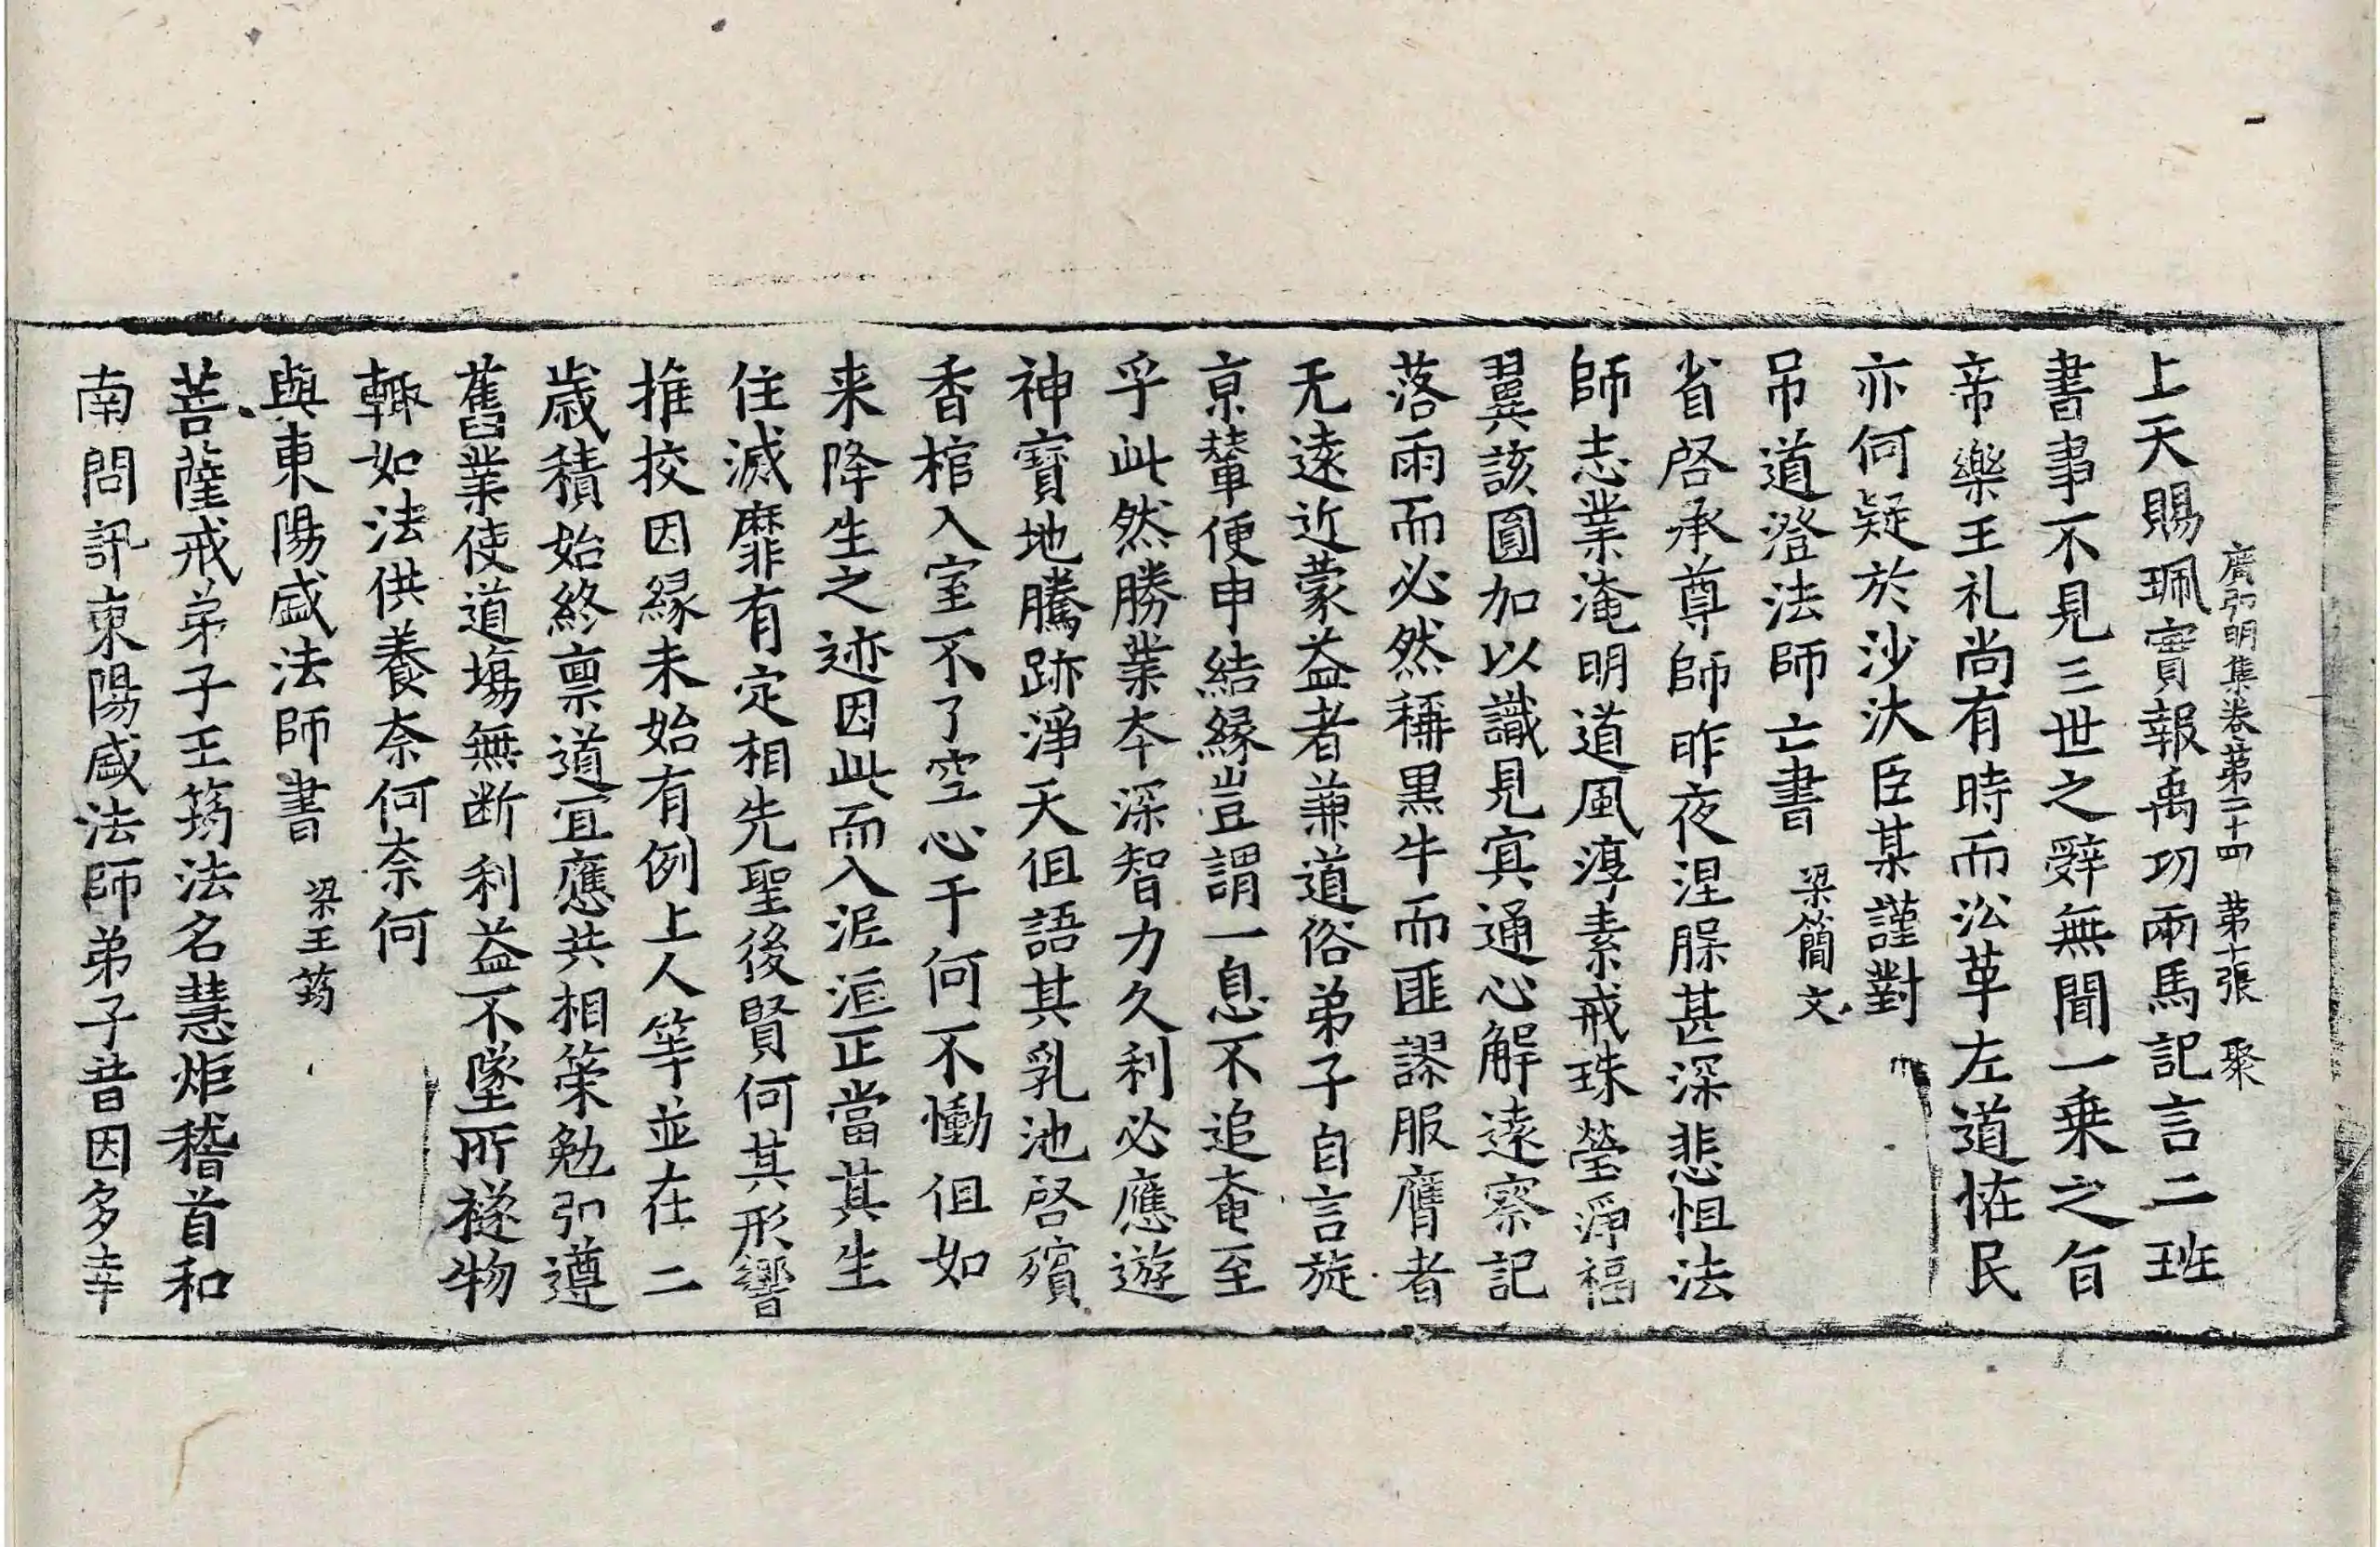 廣弘明集卷第二十四 第十張 聚
上天賜珮實報禹功兩馬記言二班
書事不見三世之辭無聞一乗之旨
帝樂王礼尚有時而沿革左道恠民
亦何疑於沙汰臣某謹對
吊道澄法師亡書 梁簡文
省啓承尊師昨夜涅脵甚深悲怛法
師志業淹明道風淳素戒珠瑩淨福
翼該圓加以識見寘通心解遠察記
落雨而必然稱黒牛而匪謬服膺者
无遠近蒙益者兼道俗弟子自言旋
京輦便申結縁豈謂一息不追奄至
乎此然勝業夲深智力久利必應遊
神寳地騰跡淨天但語其乳池啓殯
香棺入室不了空心于何不慟但如
来降生之迹因此而入泥洹正當其生
住滅靡有定相先聖後賢何其形響
推挍因縁未始有例上人等並在二
歳積始終禀道宜應共相策勉弘遵
舊業使道塲無断利益不墜所襚物
輙如法供養奈何奈何
與東陽盛法師書 梁王筠
菩薩戒弟子王筠法名慧炬稽首和
南問訊東陽盛法師弟子昔因多幸